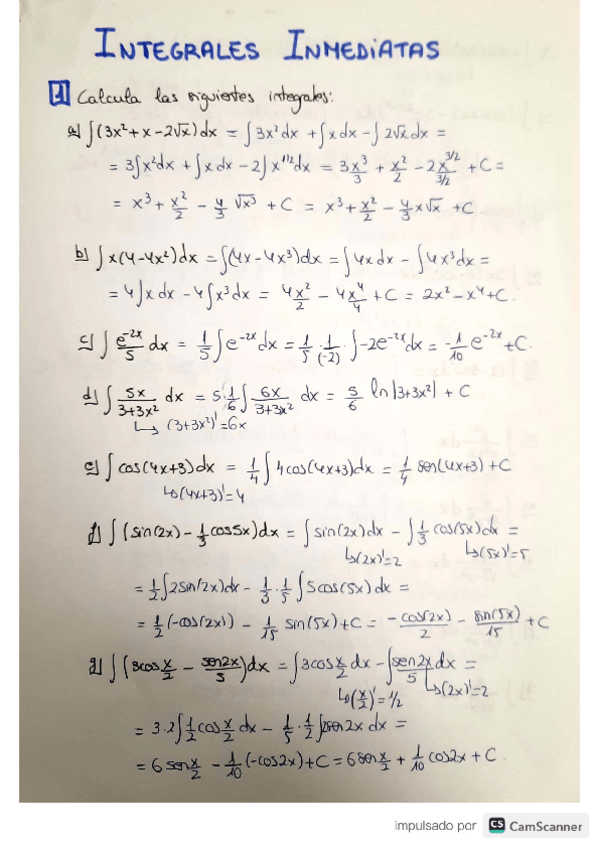 INTEGRALES INMEDIATAS
1 Calcula las siguientes integrales:
a) ∫(3x²+x-2√x)dx = ∫3x²dx + ∫x dx - ∫2√x dx =
= 3∫x²dx + ∫x dx - 2∫x^{1/2}dx = 3x³/3 + x²/2 - 2x^{3/2}/(3/2) + C =
= x³ + x²/2 - 4/3 √x³ + C = x³ + x²/2 - 4/3 x√x + C
b) ∫x(4-4x²)dx = ∫(4x-4x³)dx = ∫4x dx - ∫4x³dx =
= 4∫x dx - 4∫x³dx = 4x²/2 - 4x⁴/4 + C = 2x² - x⁴ + C.
c) ∫e^{-2x}/5 dx = 1/5 ∫e^{-2x}dx = 1/5 · 1/(-2) · ∫-2e^{-2x}dx = -1/10 e^{-2x} + C.
d) ∫5x/(3+3x²) dx = 5·1/6 ∫6x/(3+3x²) dx = 5/6 ln|3+3x²| + C
↳ (3+3x²)'=6x
e) ∫cos(4x+3)dx = 1/4 ∫4cos(4x+3)dx = 1/4 sen(4x+3) + C
↳(4x+3)'=4
f) ∫(sin(2x) - 1/3 cos5x)dx = ∫sin(2x)dx - ∫1/3 cos(5x)dx =
↳(2x)'=2 ↳(5x)'=5
= 1/2 ∫2sin(2x)dx - 1/3 · 1/5 ∫5cos(5x)dx =
= 1/2 (-cos(2x)) - 1/15 sin(5x) + C = -cos(2x)/2 - sin(5x)/15 + C
g) ∫(3cos x/2 - sen2x/5)dx = ∫3cos x/2 dx - ∫sen2x/5 dx =
↳(x/2)'=1/2 ↳(2x)'=2
= 3·2∫1/2 cos x/2 dx - 1/5 · 1/2 ∫2sen2x dx =
= 6sen x/2 - 1/10 (-cos2x) + C = 6sen x/2 + 1/10 cos2x + C.
impulsado por CS CamScanner